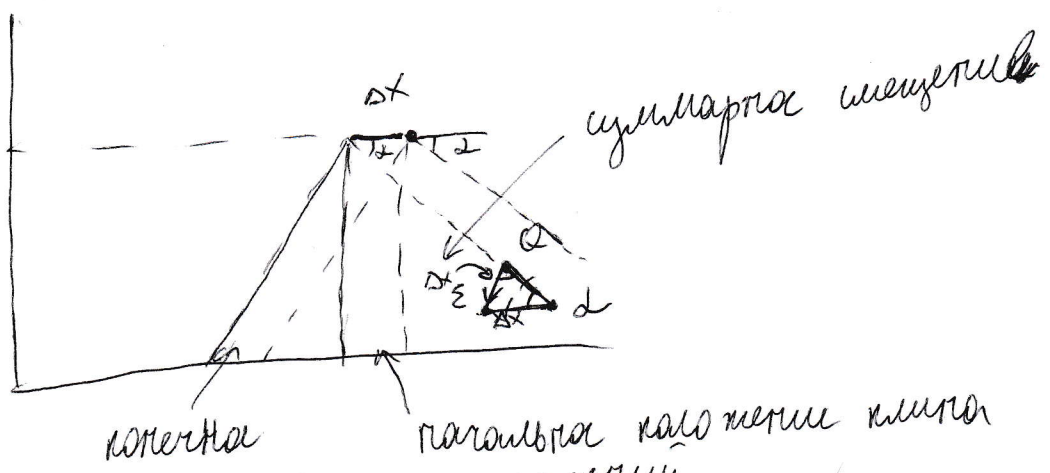 Δx
суммарна смещение
α α
Q
Δx Σ
α
Δx
конечна
начальна положение клина